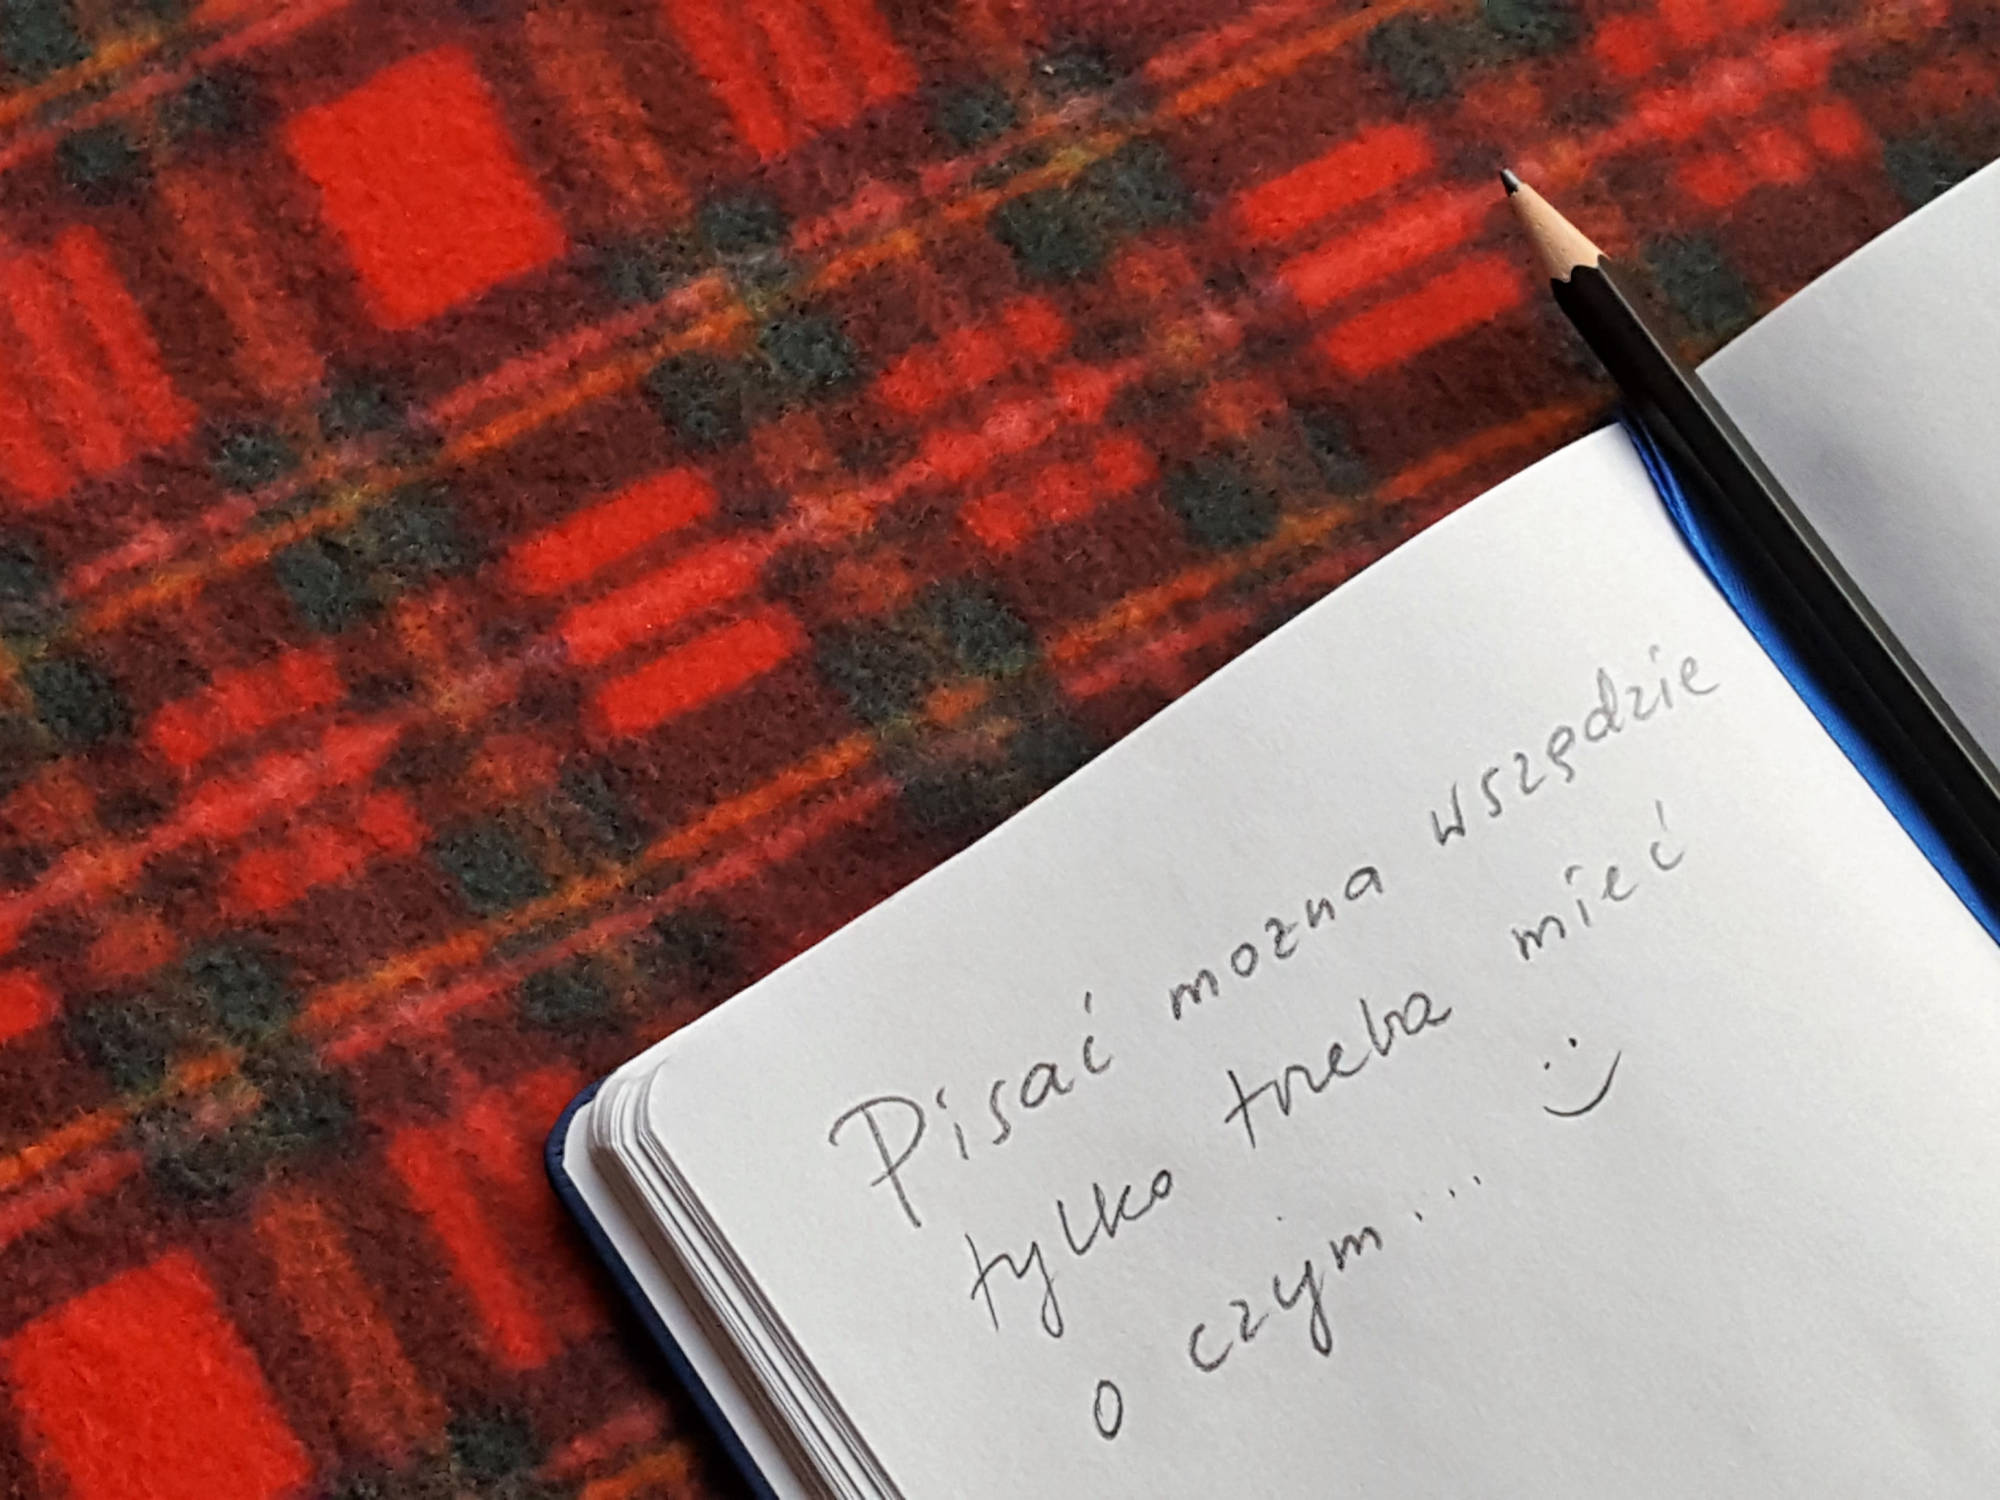 Pisać mozna wszędzie
tylko trzeba mieć
o czym... :)